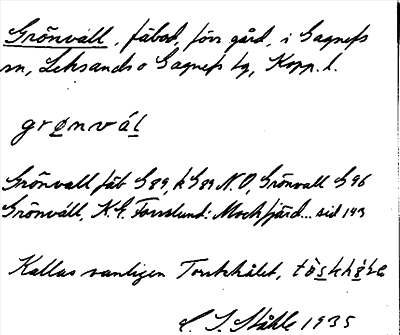 Grönvall, fäbod, förr gård, i Gagnefs
sn, Leksands o Gagnefs tg, Kopp. l.
grønvál
Grönvall fäb G 89, k G 89 N.O, Grönvall G 96
Grönváll, K.G. Forslund: Mockfjärd... sid 143
Kallas vanligen Torskhålet,
H. Ståhle 1935